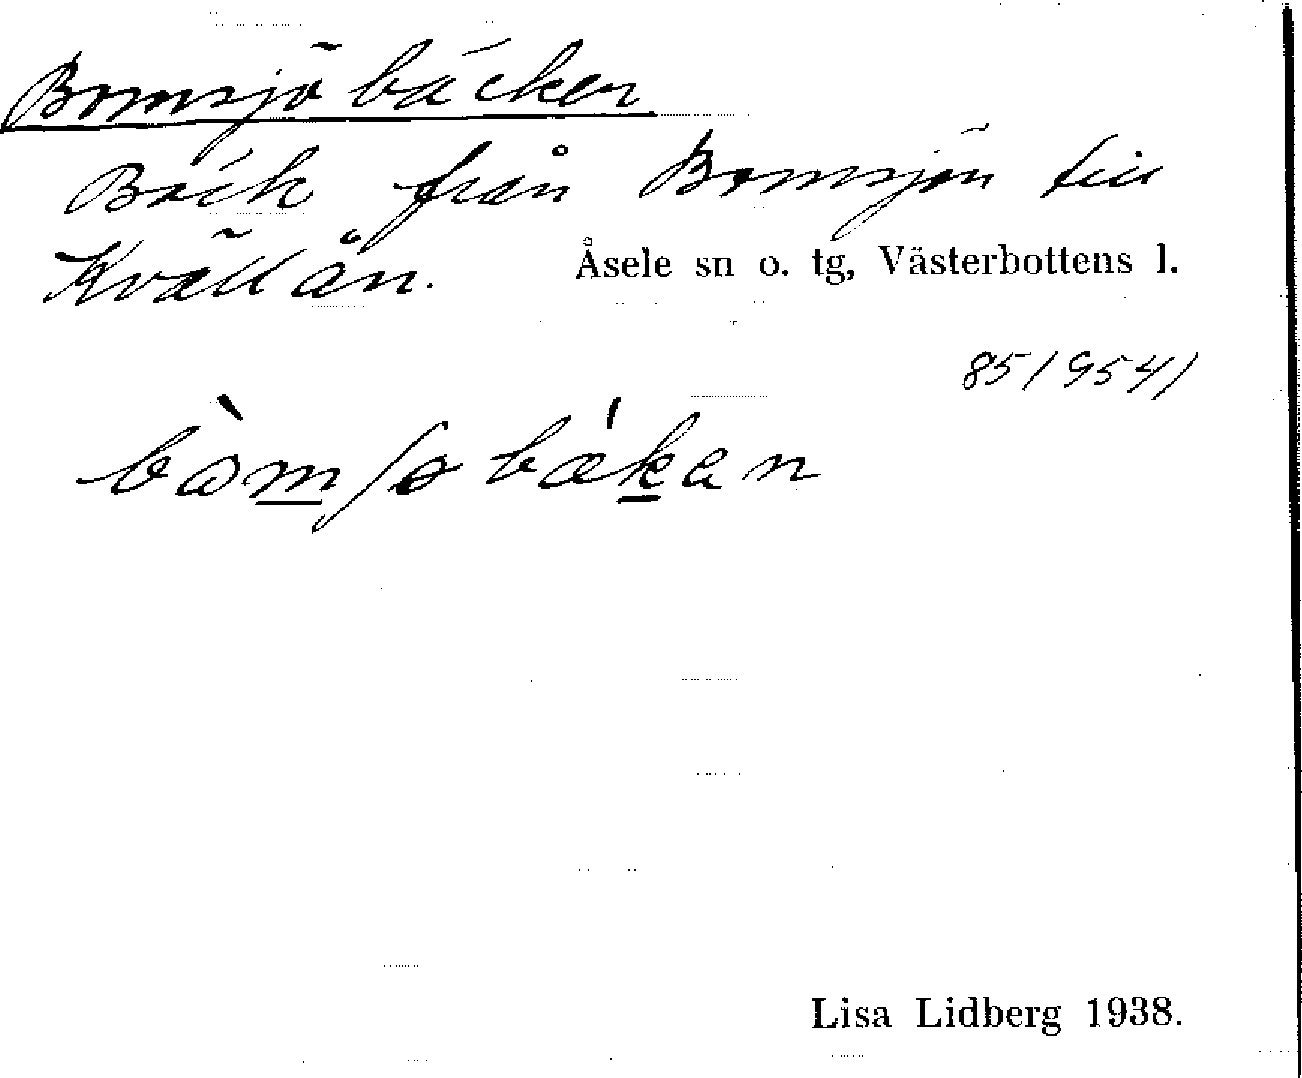 Bomsjöbäcken
Bäck från Bomsjön till
Kvällån.
Åsele sn o. tg, Västerbottens l.
85/9541
Lisa Lidberg 1938.